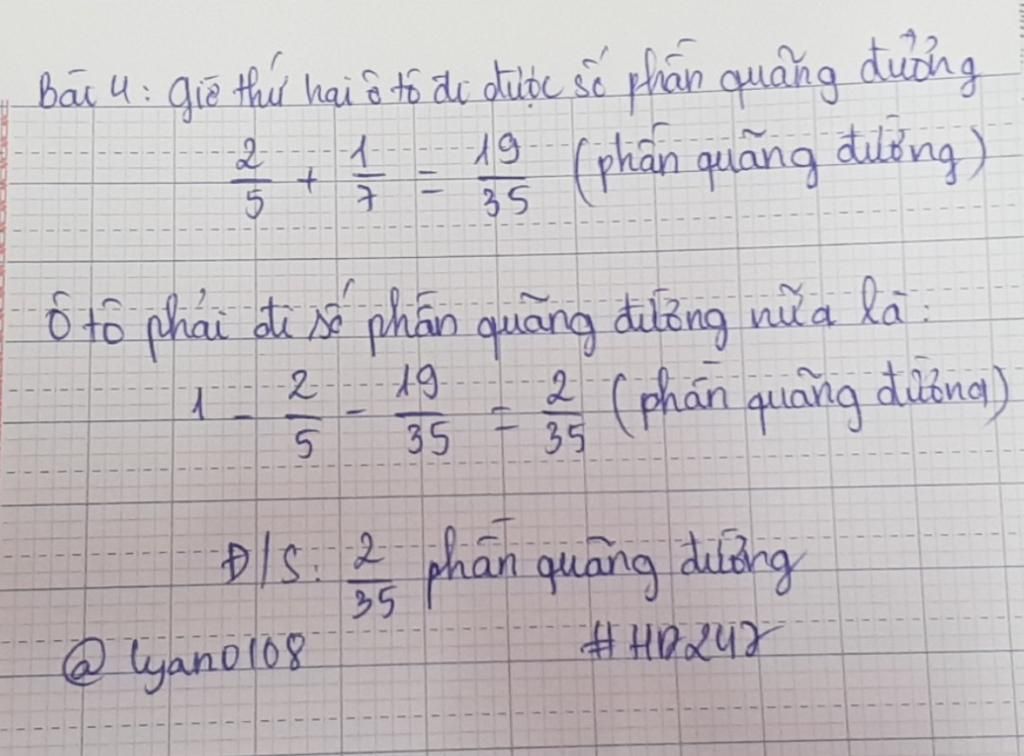 Bài 4: giờ thứ hai ô tô đi được số phần quãng đường
2/5 + 1/7 = 19/35 (phần quãng đường)
Ô tô phải đi số phần quãng đường nữa là:
1 - 2/5 - 19/35 = 2/35 (phần quãng đường)
Đ/S: 2/35 phần quãng đường
@ lyan0108 #HD247